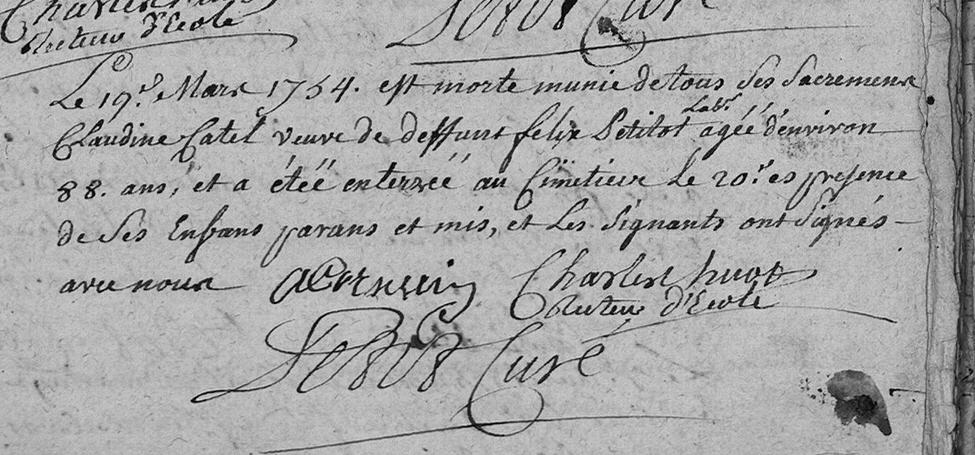 Charles huot Curé
Recteur d'Ecole
Le 19.e Mars 1754. est morte munie de tous ses Sacremens
Claudine Catel veuve de deffunt felix Petitot Labr. agéé d'environ
88. ans, et a étéé enterréé au Cimëtiere le 20.e es presence
de ses Enfans parans et mis, et les signants ont signés
avec nous Charles huot
Recteur d'Ecole
Curé